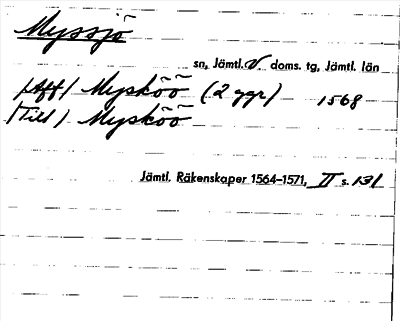 Myssjö
sn, Jämtl. V. doms. tg, Jämtl. län
/Aff/ Myskōō (2 ggr) 1568
/Till/ Myskōō
Jämtl. Räkenskaper 1564–1571, II s. 131